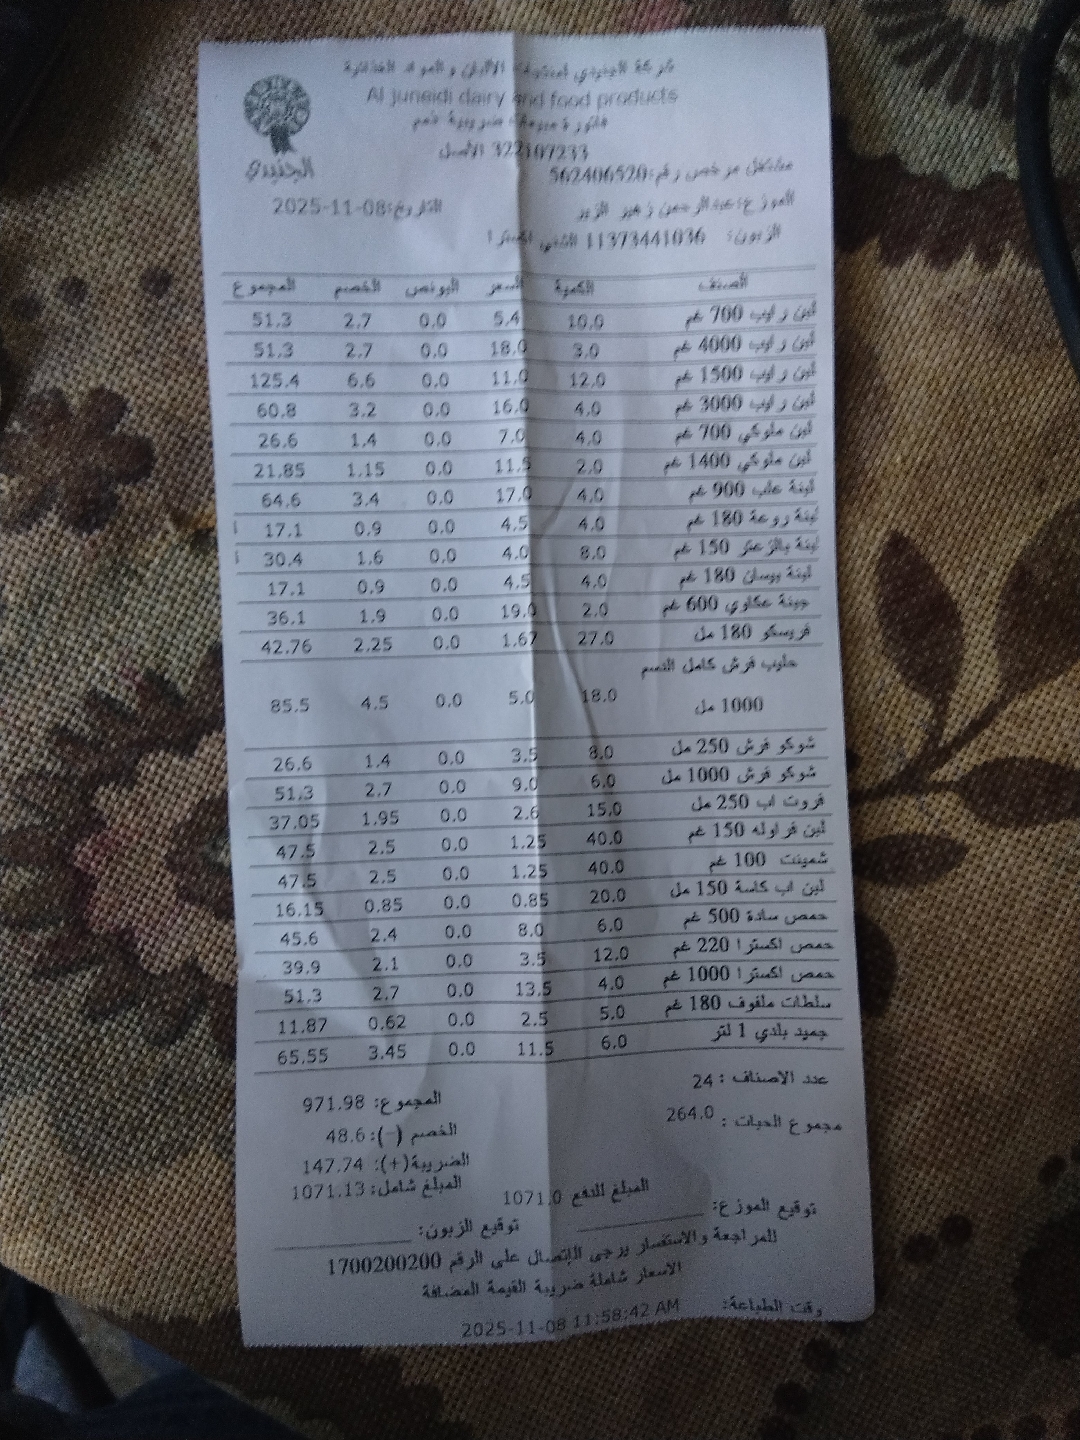 شركة الجنيدي لمنتجات الألبان و المواد الغذائية
Al juneidi dairy and food products
فاتورة مبيعات ضريبية ذمم
322107233 الأصل
الجنيدي
مشتغل مرخص رقم:562406520
الموزع:عبدالرحمن زهير الزير
التاريخ:2025-11-08
الزبون: 11373441036
الصنف الكمية السعر البونص الخصم المجموع
لبن رايب 700 غم 10.0 5.4 0.0 2.7 51.3
لبن رايب 4000 غم 3.0 18.0 0.0 2.7 51.3
لبن رايب 1500 غم 12.0 11.0 0.0 6.6 125.4
لبن رايب 3000 غم 4.0 16.0 0.0 3.2 60.8
لبن ملوكي 700 غم 4.0 7.0 0.0 1.4 26.6
لبن ملوكي 1400 غم 2.0 11.5 0.0 1.15 21.85
لبنة علب 900 غم 4.0 17.0 0.0 3.4 64.6
لبنة روعة 180 غم 4.0 4.5 0.0 0.9 17.1
لبنة بالزعتر 150 غم 8.0 4.0 0.0 1.6 30.4
لبنة بيسان 180 غم 4.0 4.5 0.0 0.9 17.1
جبنة عكاوي 600 غم 2.0 19.0 0.0 1.9 36.1
فريسكو 180 مل 27.0 1.67 0.0 2.25 42.76
حليب فرش كامل الدسم
1000 مل 18.0 5.0 0.0 4.5 85.5
شوكو فرش 250 مل 8.0 3.5 0.0 1.4 26.6
شوكو فرش 1000 مل 6.0 9.0 0.0 2.7 51.3
فروت اب 250 مل 15.0 2.6 0.0 1.95 37.05
لبن فراوله 150 غم 40.0 1.25 0.0 2.5 47.5
شمينت 100 غم 40.0 1.25 0.0 2.5 47.5
لبن اب كاسة 150 مل 20.0 0.85 0.0 0.85 16.15
حمص سادة 500 غم 6.0 8.0 0.0 2.4 45.6
حمص اكسترا 220 غم 12.0 3.5 0.0 2.1 39.9
حمص اكسترا 1000 غم 4.0 13.5 0.0 2.7 51.3
سلطات ملفوف 180 غم 5.0 2.5 0.0 0.62 11.87
جميد بلدي 1 لتر 6.0 11.5 0.0 3.45 65.55
عدد الاصناف : 24
المجموع: 971.98
مجموع الحبات : 264.0
الخصم (-): 48.6
الضريبة(+): 147.74
المبلغ شامل: 1071.13
المبلغ للدفع 1071.0
توقيع الموزع: ____________
توقيع الزبون: ____________
للمراجعة والاستفسار يرجى الإتصال على الرقم 1700200200
الاسعار شاملة ضريبة القيمة المضافة
وقت الطباعة: 2025-11-08 11:58:42 AM